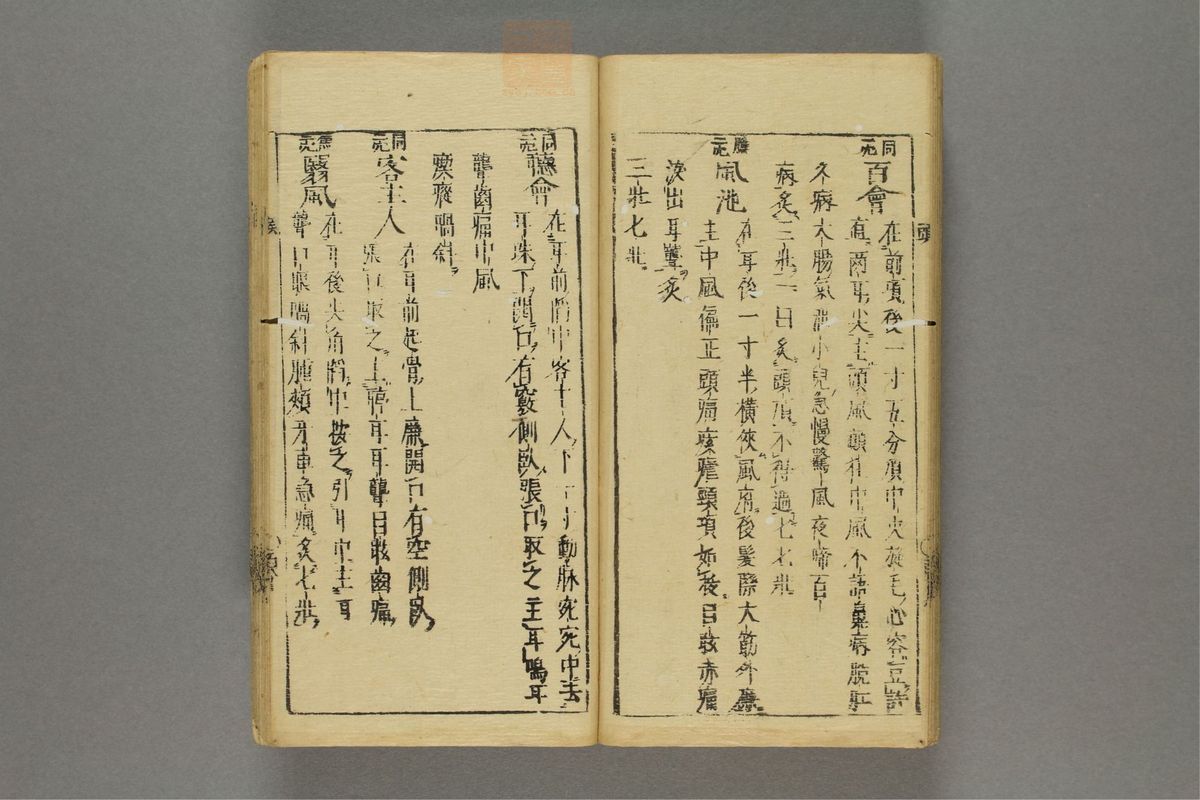 同元
百會 在前頂後一寸五分頂中央旋毛心容豆許
直兩耳尖主頭風癲狂中風不語鼻病脫肛
久病大腸氣泄小兒急慢驚風夜啼百
病灸三壯一日灸頭頂不得過七七壯
膽元
風池 在耳後一寸半橫俠風府後髮際大筋外廉
主中風偏正頭痛痎瘧頸項如拔目眩赤痛
淚出耳聾灸
三壯七壯
頭
同元
聽會 在耳前陷中客主人下一寸動脉宛宛中去
耳珠下開口有竅側臥張口取之主耳鳴耳
聾齒痛中風
瘈瘲喎斜
同元
客主人 在耳前起骨上廉開口有空側臥
張口取之主 耳耳聾目眩齒痛
焦元
翳風 在耳後尖角陷中按之引耳中主耳
聾口眼喎斜腫頰牙車急痛灸七壯